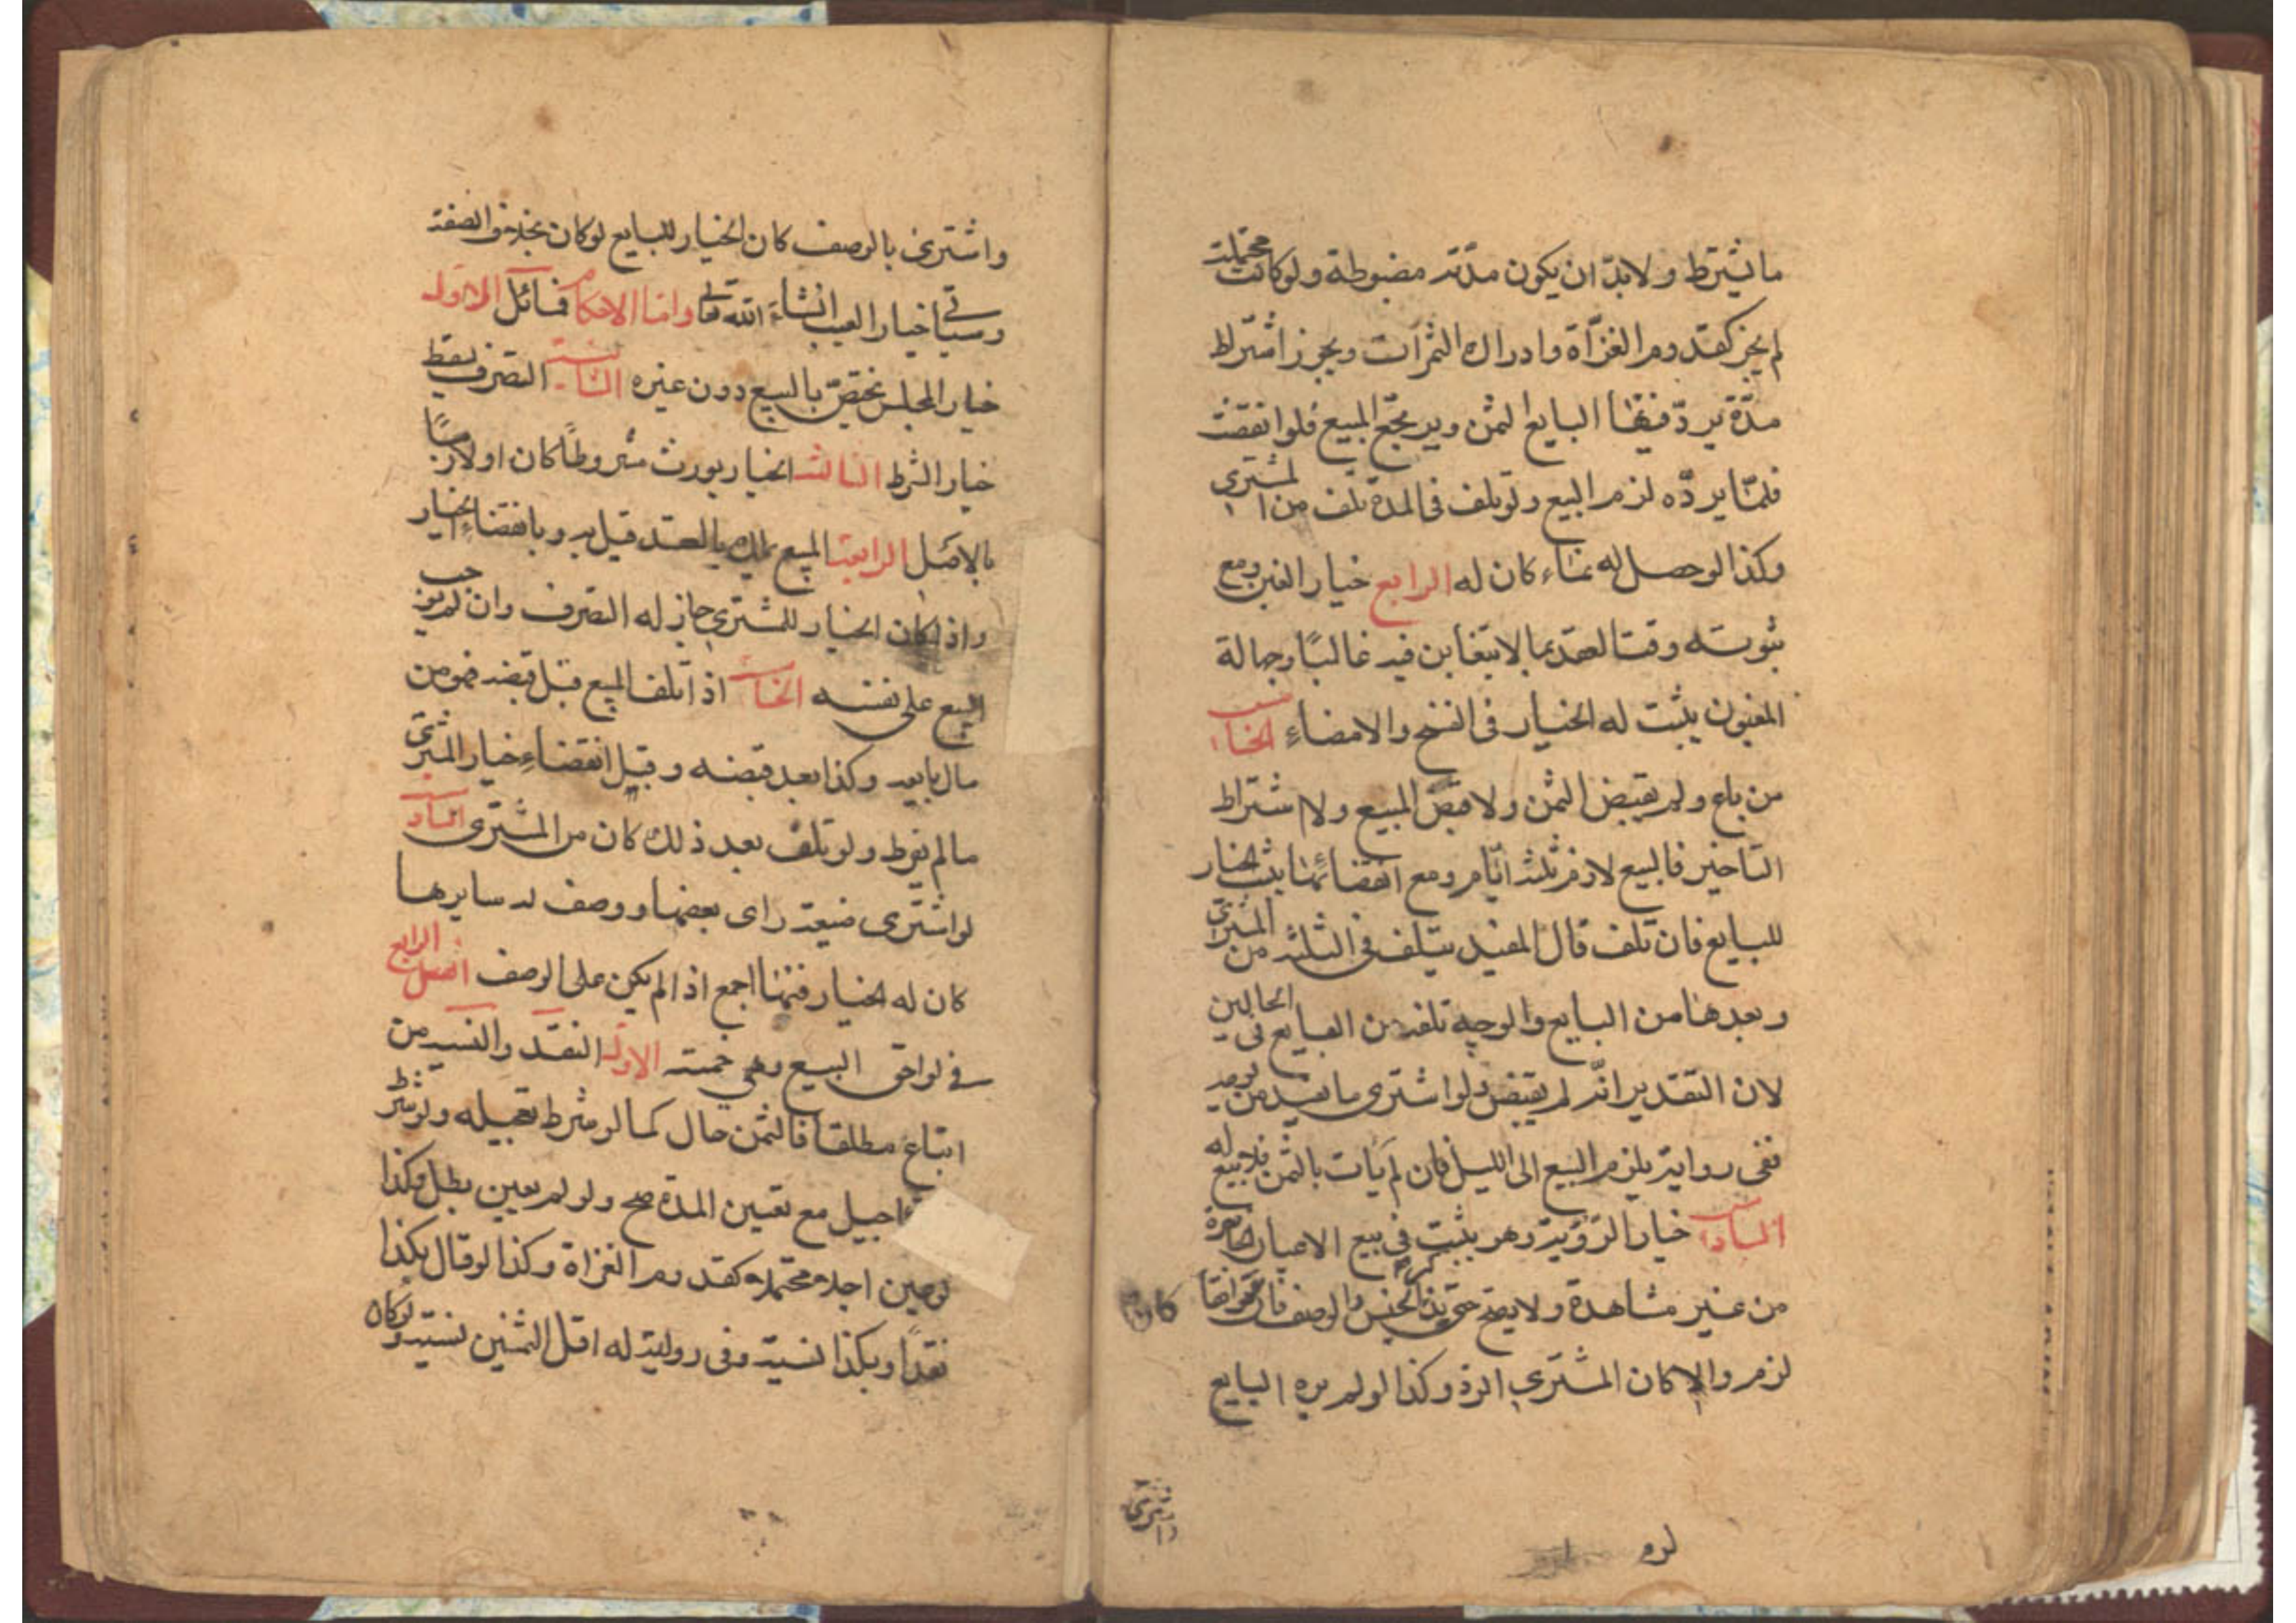 ما يشترط ولابدّ ان يكون مدّته مضبوطة ولو كانت محتملة
لم يجز كقدوم الغزّاة وادراك الثمرات ويجوز اشتراط
مدّة يردّ فيها البايع الثمن ويرتجع المبيع فلو انقضت
فلمّا يردّه لزم البيع ولو تلف في المدة تلف من المشتري
وكذا لو حصل له نماء كان له الرابع خيار الغبن ومع
ثبوته وقت العقد بما لا يتغابن فيه غالبًا وجهالة
المغبون يثبت له الخيار في الفسخ والامضاءِ الخامس
من باع ولم يقبض الثمن ولا قبض المبيع ولا اشتراط
التاخير فالبيع لازم ثلثة ايّام ومع انقضائها يثبت الخيار
للبايع فان تلف قال المفيد يتلف في الثلثة من المشتري
وبعدها من البايع والوجه تلفه من البايع في الحالين
لان التقدير انّه لم يقبض ولو اشترى ما يفسد من يومه
ففي رواية يلزم البيع الى الليل فان لم يأت بالثمن فلا بيع له
السادس خيار الرّؤية وهو يثبت في بيع الاعيان الحاضرة
من غير مشاهدة ولا يصح حتى يذكر الجنس والوصف فان موافقا كان
لزم والا كان للمشتري الردّ وكذا لو لم يره البايع
واشترى بالوصف كان الخيار للبايع لو كان بخلاف الصفة
وسيأتي خيار العيب انشاء الله تعالى واما الاحكام فمسائل الاولى
خيار المجلس يختصّ بالبيع دون غيره الثانية التصرف يسقط
خيار الشرط الثالثة الخيار يورث مشروطًا كان او لازمًا
بالاصل الرابعة المبيع يملك بالعقد وقيل به وبانقضاءِ الخيار
واذا كان الخيار للمشتري جاز له التصرف وان لم يوجب
البيع على نفسه الخامسة اذا تلف المبيع قبل قبضه فهو من
مال بايعه وكذا بعد قبضه وقبل انقضاءِ خيار المشتري
ما لم يفرط ولو تلف بعد ذلك كان من المشتري السادسة
لو اشترى ضيعة راى بعضها ووصف له سايرها
كان له الخيار فيها اجمع اذا لم يكن على الوصف الفصل الرابع
في لواحق البيع وهي خمسة الاول النقد والنسية من
ابتاع مطلقا فالثمن حال كما لو شرط تعجيله ولو شرط
التاجيل مع تعيين المدة صح ولو لم يعين بطل وكذا
لو عين اجلا محتملا كقدوم الغزاة وكذا لو قال بكذا
نقدًا وبكذا نسية وفي رواية له اقل الثمنين نسية ولو كان